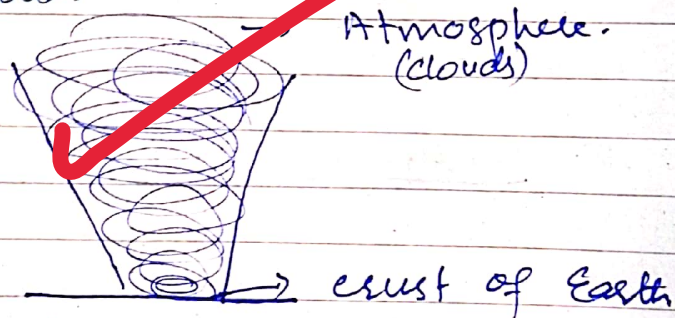 Atmosphere.
(clouds)
crust of Earth